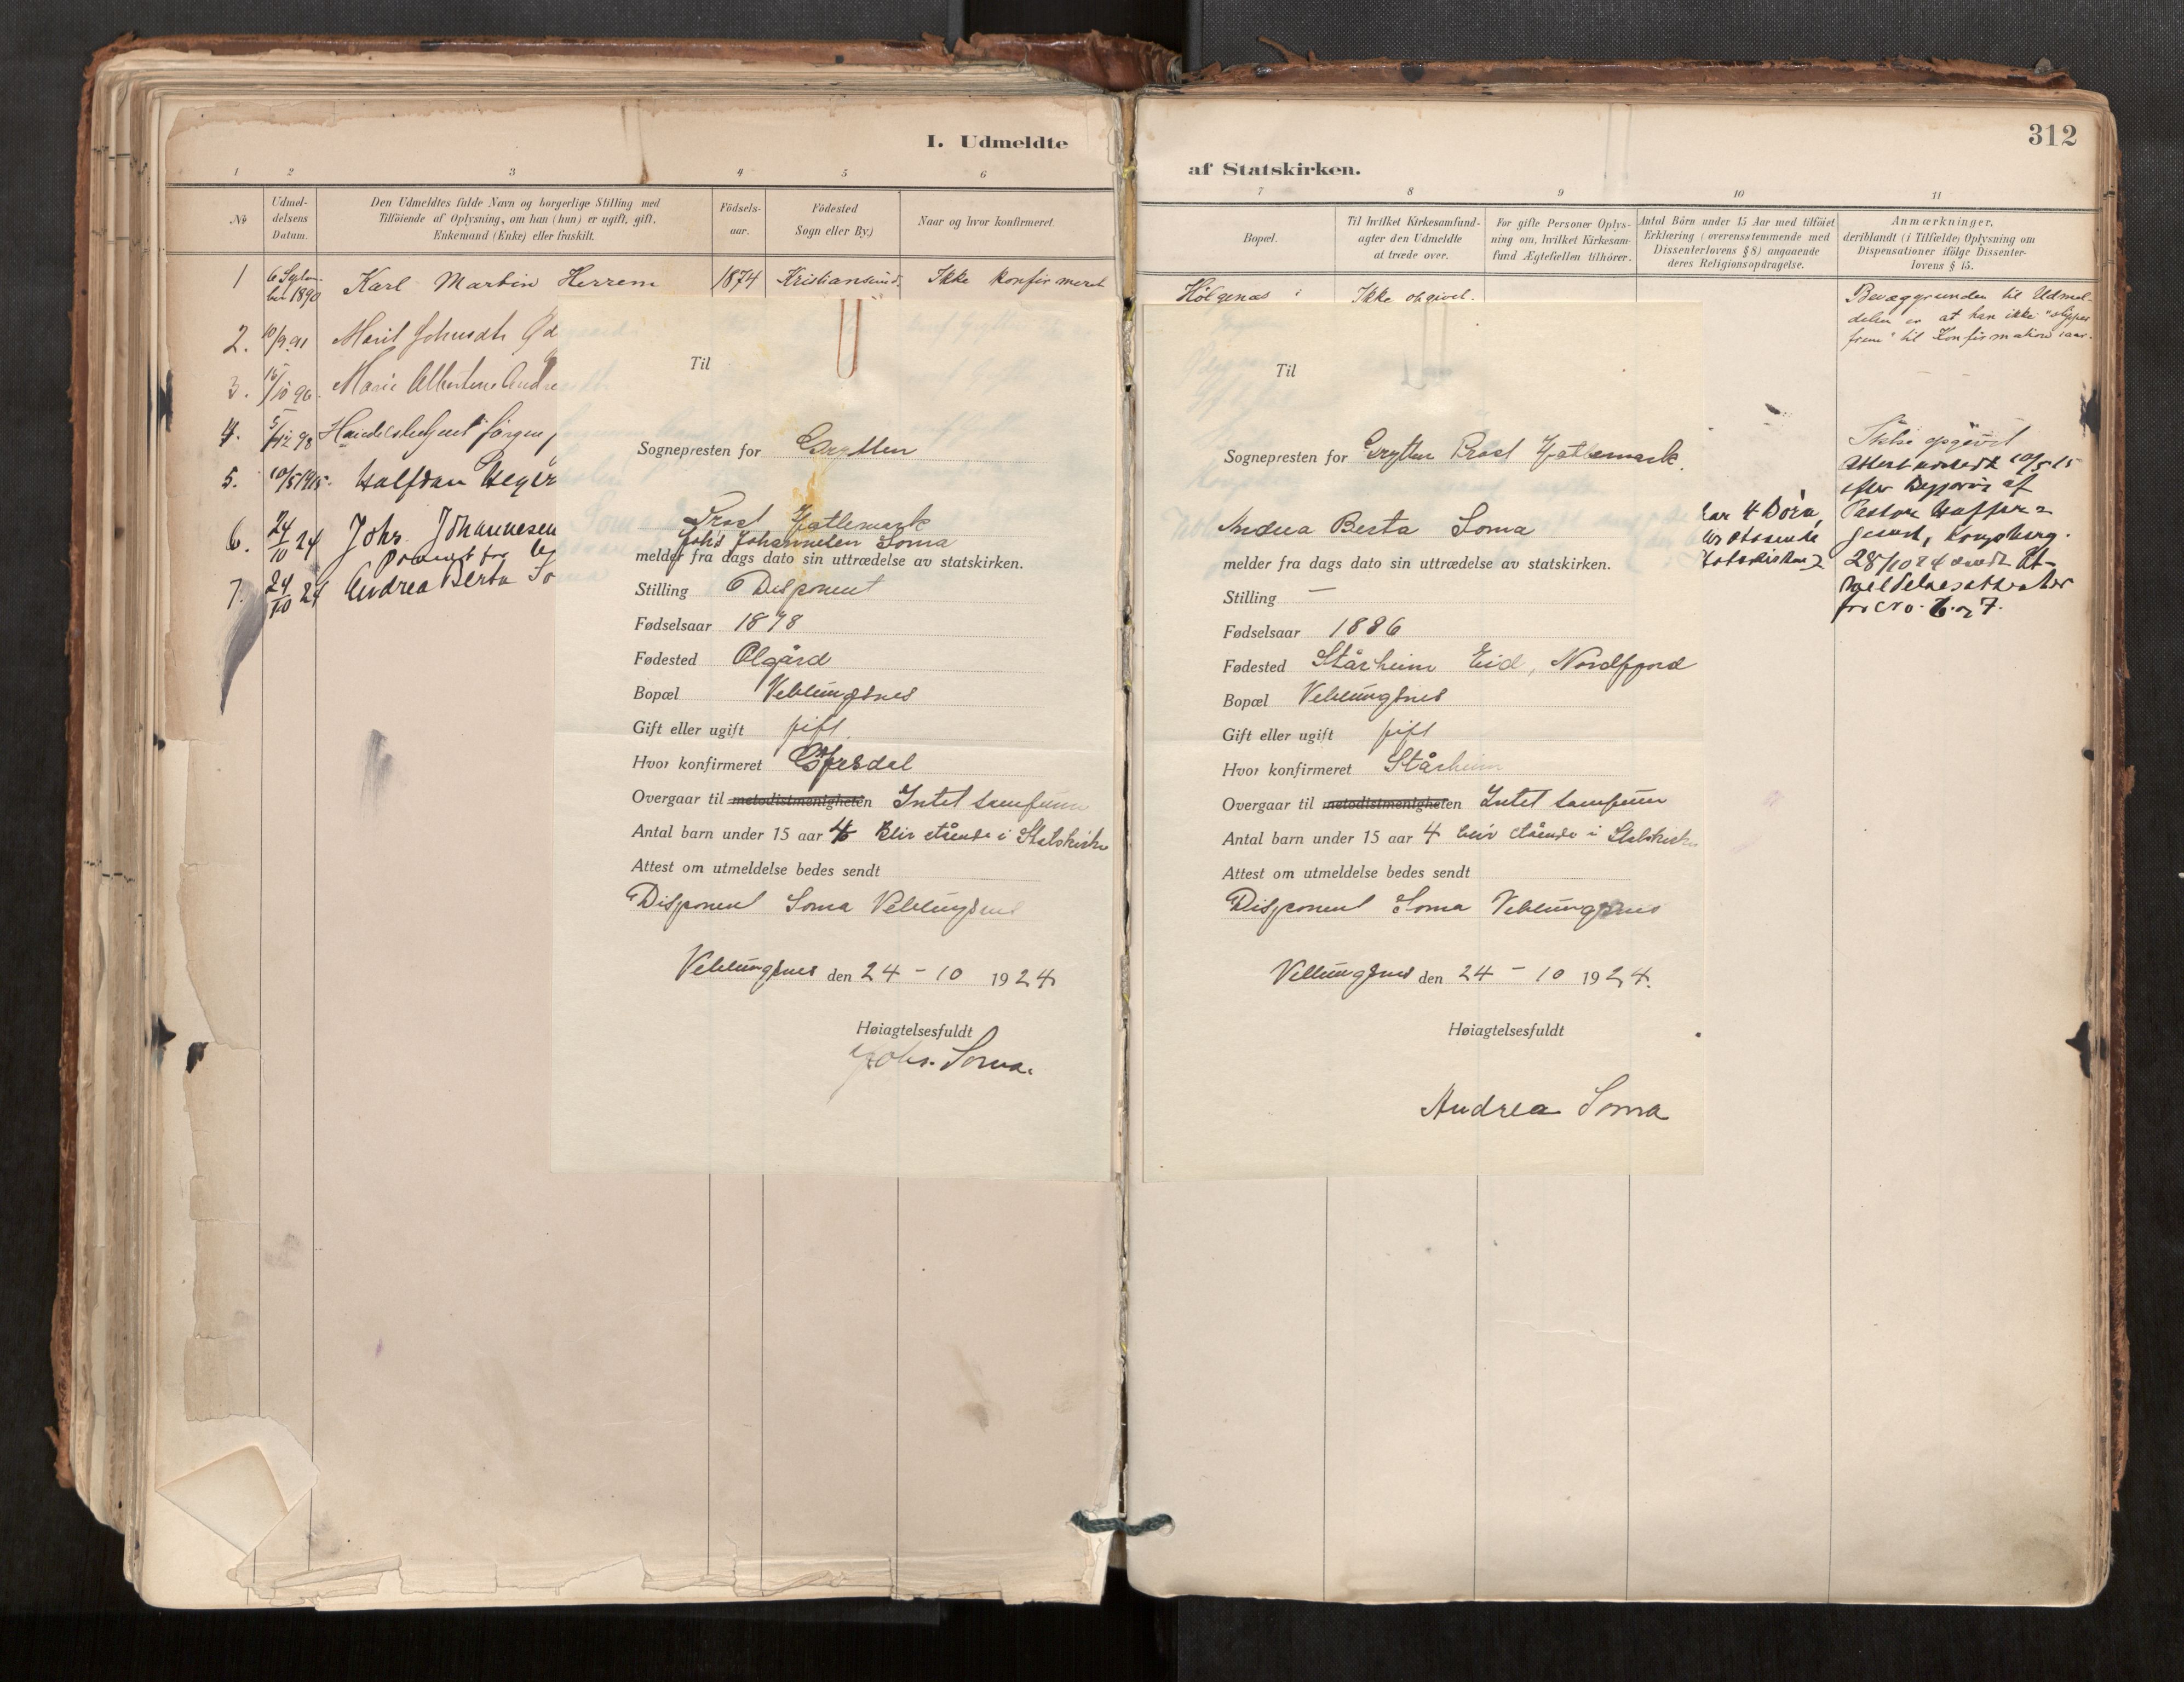 I. Udmeldte
1 2 3 4 5 6
№
Udmel-
delsens
Datum.
Den Udmeldtes fulde Navn og borgerlige Stilling med
Tilföiende af Oplysning, om han (hun) er ugift, gift,
Enkemand (Enke) eller fraskilt.
Födsels-
aar.
Födested
Sogn eller By.)
Naar og hvor konfirmeret.
1 6 Septem-
ber 1890 Karl Martin Herrem 1874 Kristiansund. Ikke konfirmeret
2. 10/9 91 Marit Johnsdtr
3. 15/10 96. Marie Albertine Andre
4. 5/12 98 Jörgen
5. 10/5 1915. Halfdan
6. 24/10 24 Johs. Johannesen
7. 24/10 24 Andrea Berta So
Til
Sognepresten for Grytten
Prost Hatlemark
Johs Johannesen Soma
melder fra dags dato sin uttrædelse av statskirken.
Stilling Disponent
Fødselsaar 1878
Fødested Olgård
Bopæl Veblungsnes
Gift eller ugift gift.
Hvor konfirmeret Gjesdal
Overgaar til metodistmenigheten Intet samfunn
Antal barn under 15 aar 4 Blir stående i Statskirke
Attest om utmeldelse bedes sendt
Disponent Soma Veblungsnes
Veblungsnes den 24 - 10 1924
Høiagtelsesfuldt
Johs. Soma.
312
af Statskirken.
7 8 9 10 11
Bopæl.
Til hvilket Kirkesamfund-
agter den Udmeldte
at træde over.
For gifte Personer Oplys-
ning om, hvilket Kirkesam-
fund Ægtefællen tilhörer.
Antal Börn under 15 Aar med tilföiet
Erklæring (overensstemmende med
Dissenterlovens § 8) angaaende
deres Religionsopdragelse.
Anmærkninger,
deriblandt (i Tilfælde) Oplysning om
Dispensationer ifölge Dissenter-
lovens § 15.
i Ikke opgivet.
Bevæggrunden til Udmel-
delsen er at han ikke "slippes
frem" til Konfirmation iaar.
Til
Sognepresten for Grytten Prost Hatlemark.
Andrea Berta Soma
melder fra dags dato sin uttrædelse av statskirken.
Stilling —
Fødselsaar 1886
Fødested Stårheim Eid, Nordfjord
Bopæl Veblungsnes
Gift eller ugift gift
Hvor konfirmeret Stårheim
Overgaar til metodistmenigheten Intet samfunn
Antal barn under 15 aar 4 blir stående i Statskirke
Attest om utmeldelse bedes sendt
Disponent Soma Veblungsnes
Veblungsnes den 24 - 10 1924.
Høiagtelsesfuldt
Andrea Soma
har 4 Börn,
Ikke opgivet
Attest udstedt 10/5 15
efter Begjæring af
Pastor
Kongsberg.
28/10 24 sendt Ut-
meldelsesattester
for No. 6 og 7.